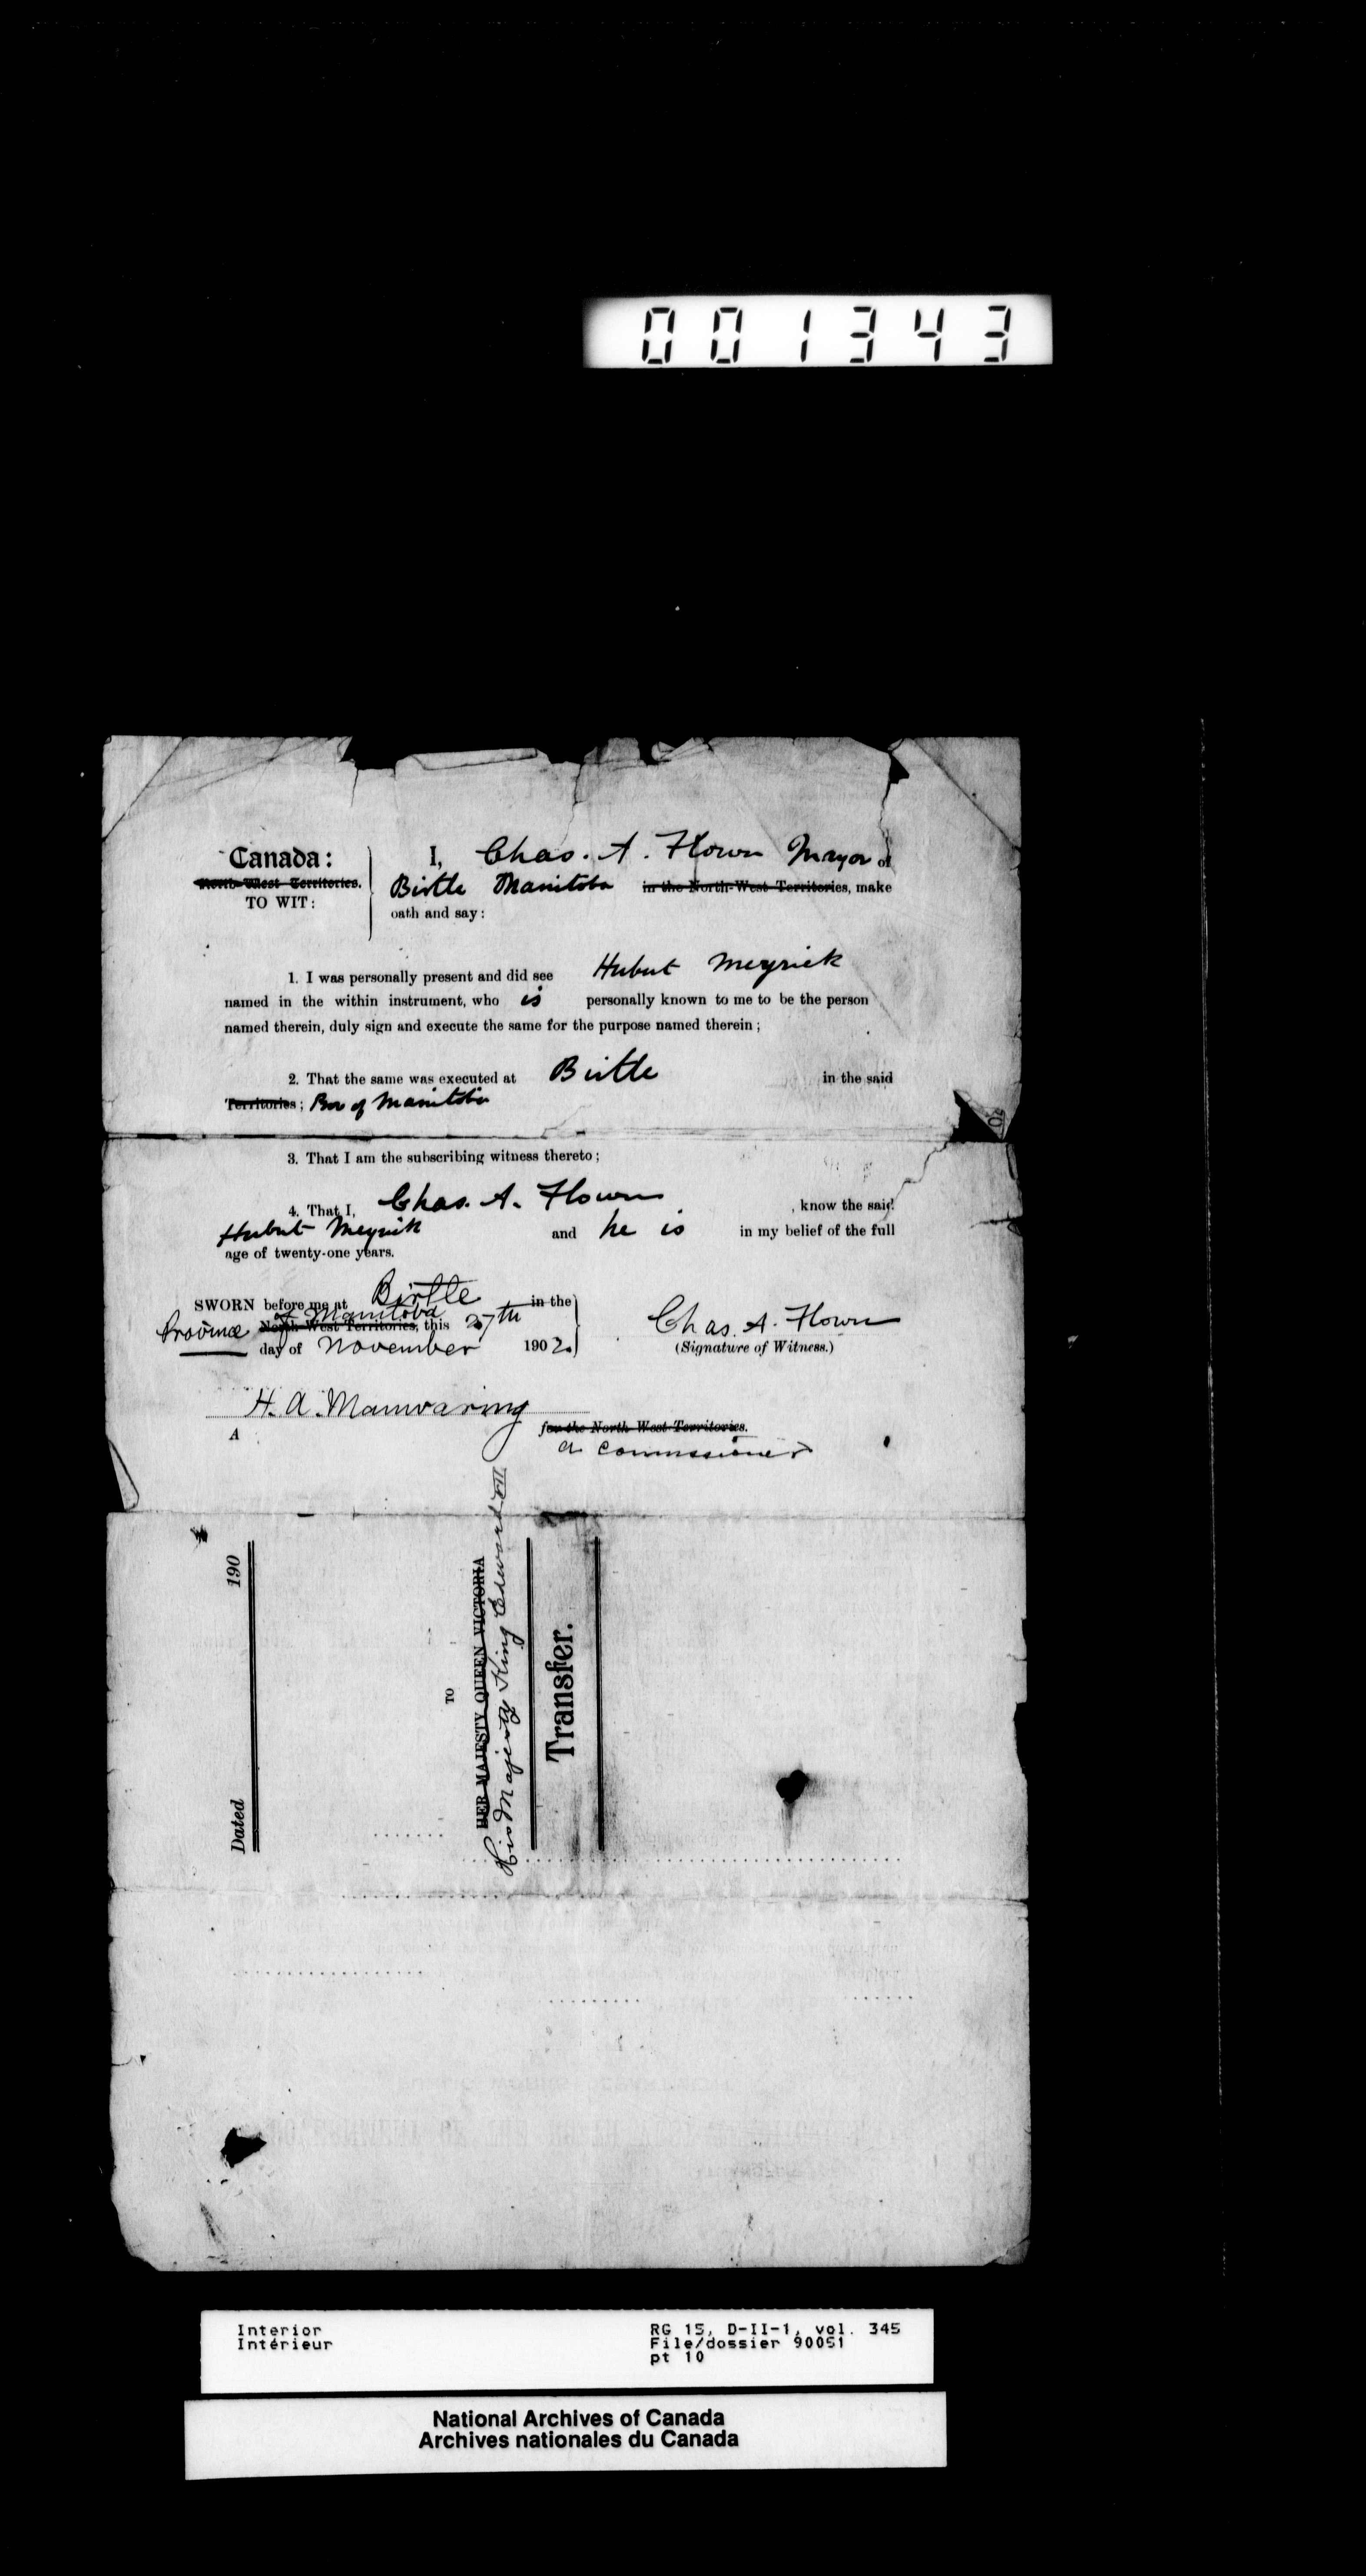 001343
Canada:
North-West Territories.
TO WIT:
I, Chas. A. Flower Mayor of
Birtle Manitoba in the North-West Territories, make
oath and say:
1. I was personally present and did see Hubert Meyrick
named in the within instrument, who is personally known to me to be the person
named therein, duly sign and execute the same for the purpose named therein;
2. That the same was executed at Birtle in the said
Territories; Prov of Manitoba
3. That I am the subscribing witness thereto;
4. That I, Chas. A. Flower, know the said
Hubert Meyrick and he is in my belief of the full
age of twenty-one years.
SWORN before me at Birtle in the
Province of Manitoba North-West Territories, this 27th
day of November 1902.
Chas. A. Flower
(Signature of Witness.)
H. A. Manwaring
A for the North-West Territories.
a commissioner
Dated 190
TO
HER MAJESTY QUEEN VICTORIA
His Majesty King Edward VII
Transfer.
Interior
Intérieur
RG 15, D-II-1, vol. 345
File/dossier 90051
pt 10
National Archives of Canada
Archives nationales du Canada